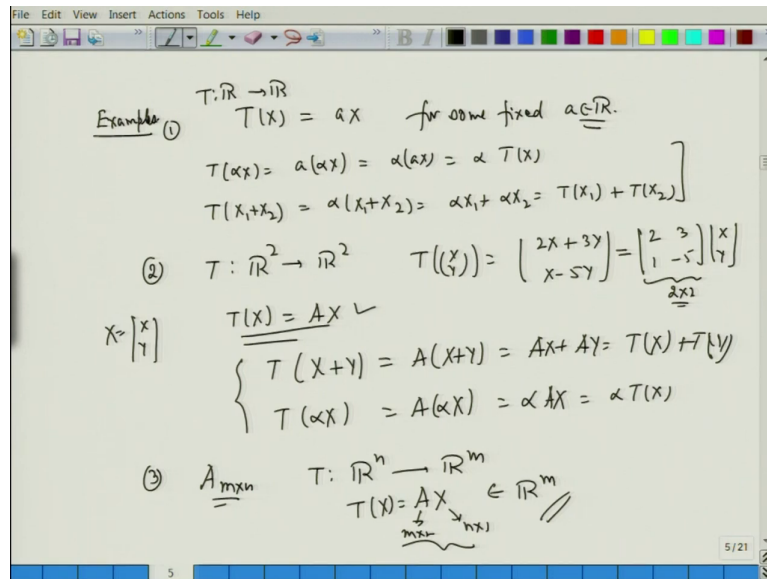 File Edit View Insert Actions Tools Help
T: ℝ → ℝ
Examples ① T(x) = ax for some fixed a∈ℝ.
T(αx) = a(αx) = α(ax) = α T(x)
T(x₁+x₂) = α(x₁+x₂) = αx₁ + αx₂ = T(x₁) + T(x₂)]
② T: ℝ² → ℝ² T((x y)) = [2x + 3y x - 5y] = [2 3 1 -5] [x y]
2x2
X = [x y] T(X) = AX ✓
T(X+Y) = A(X+Y) = AX + AY = T(X) + T(Y)
T(αX) = A(αX) = α AX = α T(X)
③ A m×n T: ℝⁿ → ℝᵐ
T(X) = AX ∈ ℝᵐ
m×n n×1
5/21
5